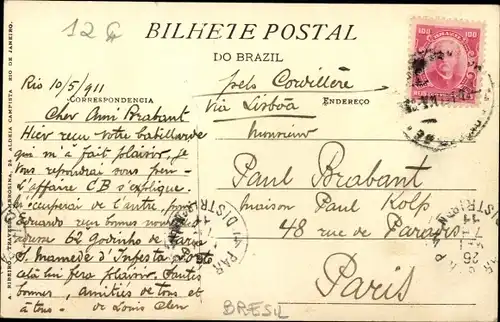 12
BILHETE POSTAL
DO BRAZIL
100 BRAZIL 100
Rio 10/5/911
pelo Cordillère
CORRESPONDENCIA
via Lisbôa
ENDEREÇO
Cher Ami Brabant
Monsieur
Hier reçu votre babillarde
qui m'a fait plaisir. Je
Vous repondrai sous peu.
Paul Brabant
L'affaire CB s'explique.
maison Paul Kolp
m'occuperai de l'autre, pour
Eduardo reçu bonnes
48 rue de Paradis
62 Godinho de Faria
S. Mamede d'Infesta Porto
Paris
celà lui fera plaisir. Toutes
bonnes, amitiés de tous et
à tous.
de Louis
BRESIL
A. RIBEIRO, TRAVESSA AMBROSINA, 26, ALDEIA CAMPISTA RIO DE JANEIRO.